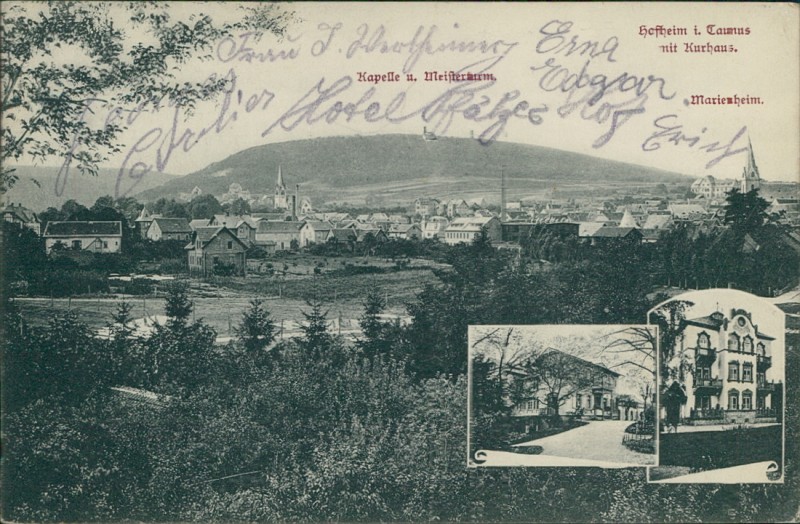 Hofheim i. Taunus
mit Kurhaus.
Kapelle u. Meisterturm.
Marienheim.
Frau J. Wertheimer
Erna
Edgar
Hotel Pfälzer Hof
Erich